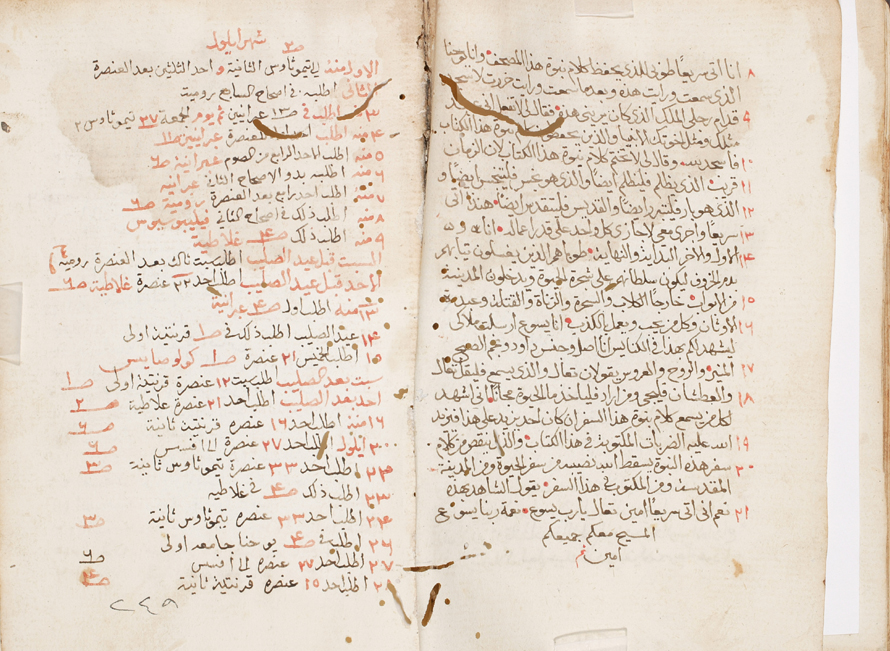 ٨ انا اتى سريعًا طوبى للذي يحفظ كلام نبوة هذا المصحف وانا يوحنا
الذي سمعت ورايت هذه وبعد ما سمعت ورايت خررت لاسجد
٩ قدام رجلي الملاك الذي كان يريني هذه فقال لي لا تفعل
مثلك ومثل اخوتك الانبيا والذين يحفظون نبوة هذا الكتاب
١٠ فاسجد وقال لي لا تختم كلام نبوة هذا الكتاب لان الزمان
١١ قريب الذي يظلم فليظلم ايضًا والذي هو نجس فليتنجس ايضًا و
١٢ الذي هو بار فليتبرر ايضًا والقديس فليتقدس ايضًا هذا اتى
١٣ سريعًا واجرى معي لاجازى كل واحد على قدر اعماله انا
١٤ الاول والاخر البداية والنهاية طوباهم الذين يغسلون ثيابهم
بدم الخروف ليكون سلطانهم على شجرة الحيوة ويدخلون المدينة
١٥ من الابواب خارجًا الكلاب والسحرة والزناة والقتلة وعبدة
١٦ الاوثان وكل من يحب ويعمل الكذب انا يسوع ارسلت ملاكي
ليشهد لكم بهذا في الكنايس انا اصل وجنس داود ونجم الصبح
١٧ المنير والروح والعروس يقولان تعال والذي يسمع فليقل تعال
١٨ والعطشان فليجي ومن اراد فلياخذ ما الحيوة مجانًا انى اشهد
لكل من يسمع كلام نبوة هذا السفر ان كان احد يزيد على هذا فيزيد
١٩ الله عليه الضربات المكتوبة في هذا الكتاب والذي ينقص من كلام
٢٠ سفر هذه النبوة يسقط الله نصيبه من سفر الحيوة ومن المدينة
المقدسة ومن المكتوب في هذا السفر يقول الشاهد بهذه
٢١ نعم انى اتى سريعًا امين تعال يا رب يسوع نعمة ربنا يسوع
المسيح معكم جميعكم
امين تم
شهر ايلول ص٢
الاول منه لي تيموثاوس الثانية واحد الثلثين بعد العنصرة
الثاني اطلبه في اصحاح السابع رومية
٣ منه اطلب في ص١٣ عبرانيين ثم يوم الجمعة ٣٧ تيموثاوس ٢
٤ منه اطلب العنصرة عبرانيين ص١١
٥ منه اطلب الاحد الرابع من الصوم عبرانية ص٦
٦ منه اطلبه بدو الاصحاح الثاني عبرانية
٧ منه اطلب احد رابع بعد العنصرة رومية ص٦
٨ منه اطلب ذلك في اصحاح الثاني فيليبوسيوس
٩ منه اطلب ذلك ص٤ غلاطية
السبت قبل عيد الصليب اطلب سبت ثالث بعد العنصرة رومية ص٣
الاحد قبل عيد الصليب اطلب احد ٢٢ عنصرة غلاطية ص٦
١٣ منه اطلب اول ص٤ عبرانية
١٤ عيد الصليب اطلب ذلك في ص١ قرنتية اولى
١٥ اطلب الخميس ٢١ عنصرة ص١ كولوصايس
سبت بعد الصليب اطلب سبت ١٢ عنصرة قرنتية اولى ص١
احد بعد الصليب اطلب احد ٢١ عنصرة غلاطية ص٢
١٦ منه اطلب احد ١٦ عنصرة قرنتية ثانية ص٦
٢٠ ايلول اطلب احد ٢٧ عنصرة الى افسس ص٦
٢٢ اطلب احد ٣٣ عنصرة تيموثاوس ثانية ص٣
٢٣ اطلب ذلك ص٤ في غلاطية
٢٤ اطلب احد ٣٣ عنصرة تيموثاوس ثانية ص٣
٢٦ اطلب في ص٤ يوحنا جامعه اولى
٢٧ اطلب احد ٢٧ عنصرة الى افسس ص٦
٢ اطلب احد ١٥ عنصرة قرنتية ثانية ص٤
٢٤٩